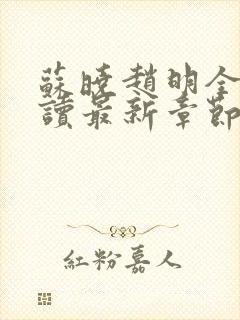 蘇曉趙明全
讀最新章節
紅粉嘉人